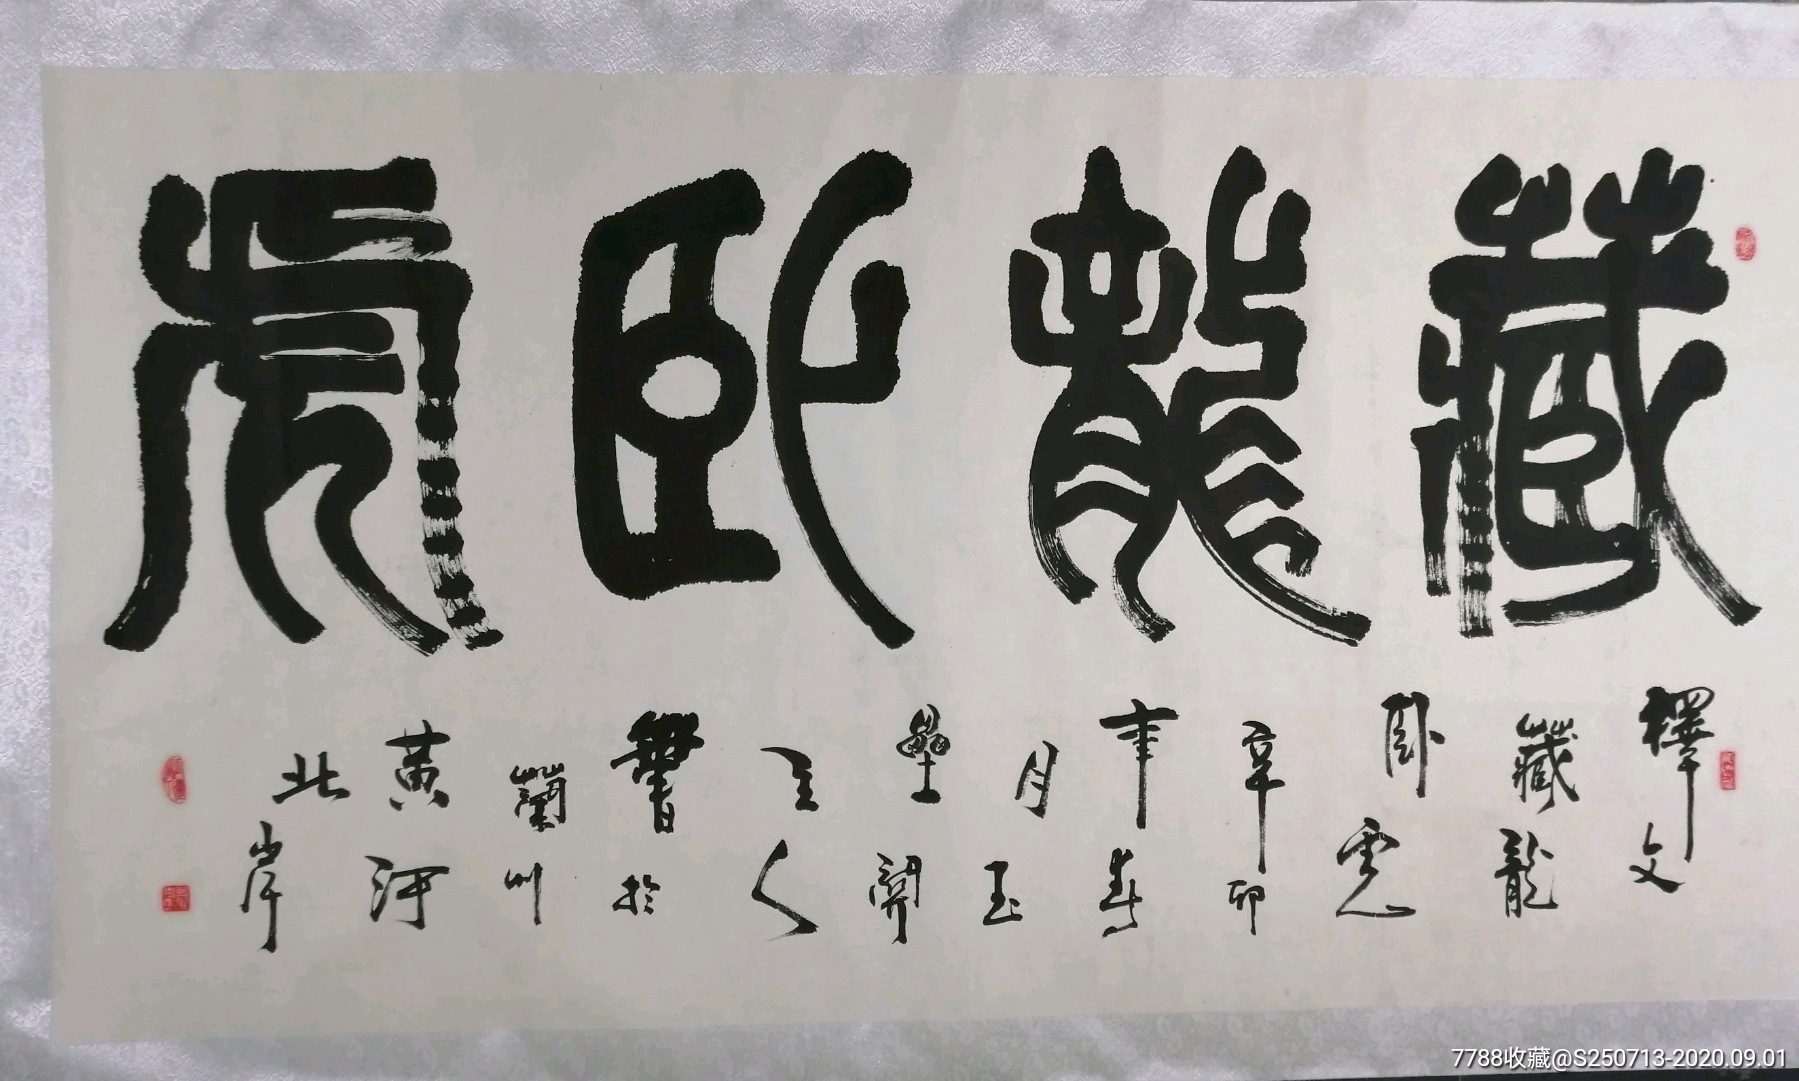 藏龍臥虎
釋文
藏龍
臥虎
辛卯
年春
月玉
壘關
主人
書於
蘭州
黃河
北岸
7788收藏@S250713-2020.09.01